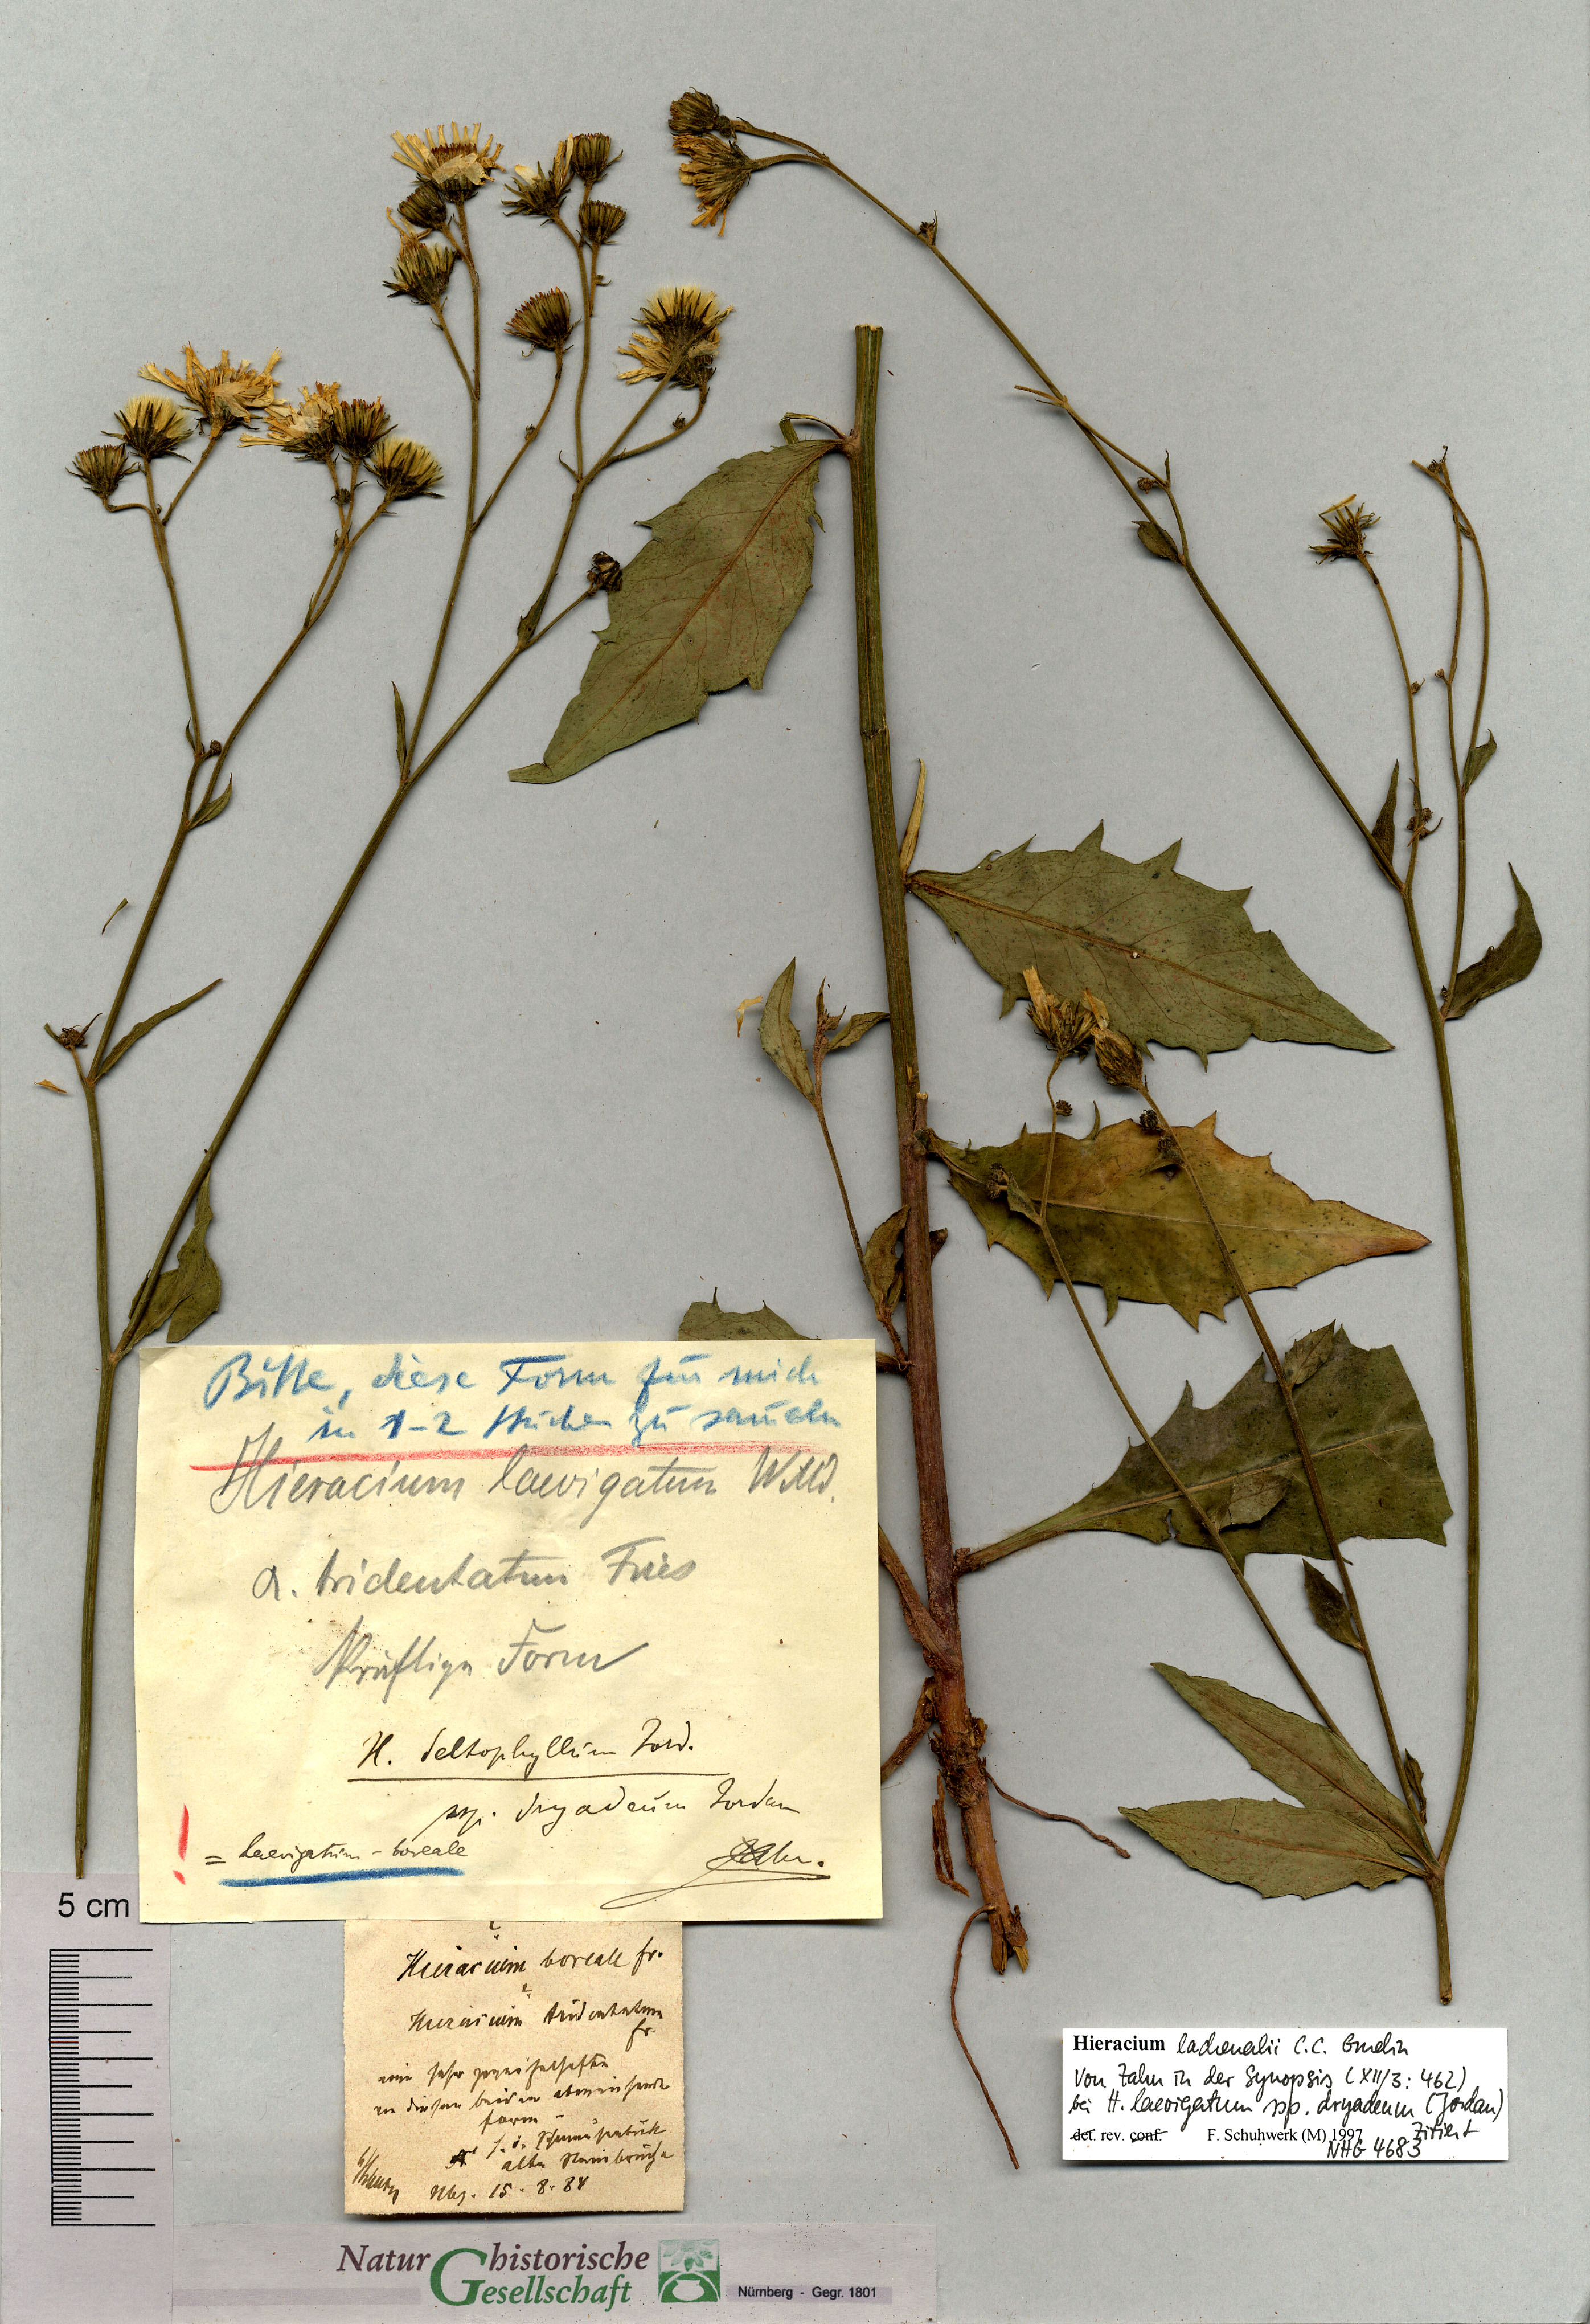 Bitte, diese Form für mich
in 1-2 Stücken zu
Hieracium laevigatum Willd.
α. tridentatum Fries
Kräftige Form
H. deltophyllum Jord.
ssp. dryadeum Jordan
= laevigatum - boreale
Zahn.
5 cm
?
Hieracium boreale fr.
?
Hieracium tridentatum
fr.
eine sehr zweifelhafte
zu diesen beiden
form
alte Steinbrüche
Nbg. 15. 8. 84
Hieracium lachenalii C.C. Gmelin
Von Zahn in der Synopsis (XII/3: 462)
bei H. laevigatum ssp. dryadeum (Jordan)
zitiert
det. rev. conf. F. Schuhwerk (M) 1997
NHG 4683
Natur historische
Gesellschaft
Nürnberg - Gegr. 1801